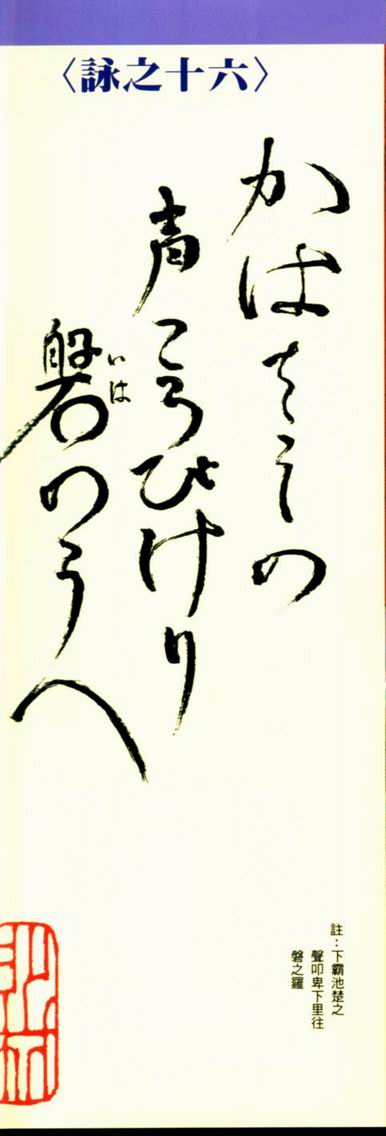 〈詠之十六〉
かはせみの
声ころびけり
磐のうへ
いは
註：下霸池楚之
聲叩卑下里往
磐之羅